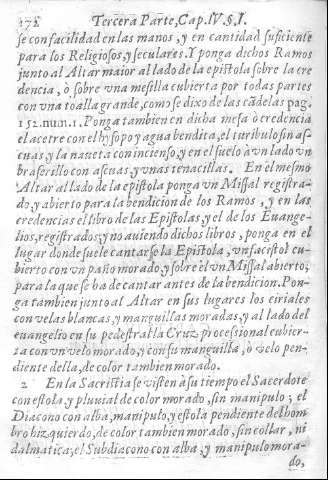 172 Tercera Parte, Cap. IV. §. I.
se con facilidad en las manos, y en cantidad suficiente
para los Religiosos, y seculares. Y ponga dichos Ramos
junto al Altar maior al lado de la epistola sobre la cre
dencia, ò sobre vna mesilla cubierta por todas partes
con vna toalla grande, como se dixo de las cãdelas pag.
152. num. 1. Ponga tambien en dicha mesa ò credencia
el acetre con el hysopo y agua bendita, el turibulo sin as-
cuas, y la naueta con incienso, y en el suelo à vn lado vn
braserillo con ascuas, y vnas tenacillas. En el mesmo
Altar al lado de la epistola ponga vn Missal registra-
do, y abierto para la bendicion de los Ramos, y en las
credencias el libro de las Epistolas, y el de los Euange-
lios, registrados, y no auiendo dichos libros, ponga en el
lugar donde suele cantarse la Epistola, vn facistol cu-
bierto con vn paño morado, y sobre èl vn Missal abierto,
para la que se ha de cantar antes de la bendicion. Pon-
ga tambien junto al Altar en sus lugares los ciriales
con velas blancas, y manguillas moradas, y al lado del
euangelio en su pedestral la Cruz processional cubier-
ta con vn velo morado, y con su manguilla, ò velo pen-
diente della, de color tambien morado.
2 En la Sacristia se visten à su tiempo el Sacerdote
con estola, y pluuial de color morado, sin manipulo; el
Diacono con alba, manipulo, y estola pendiente del hom
bro hizquierdo, de color tambien morado, sin collar, ni
dalmatica; el Subdiacono con alba, y manipulo mora-
do,